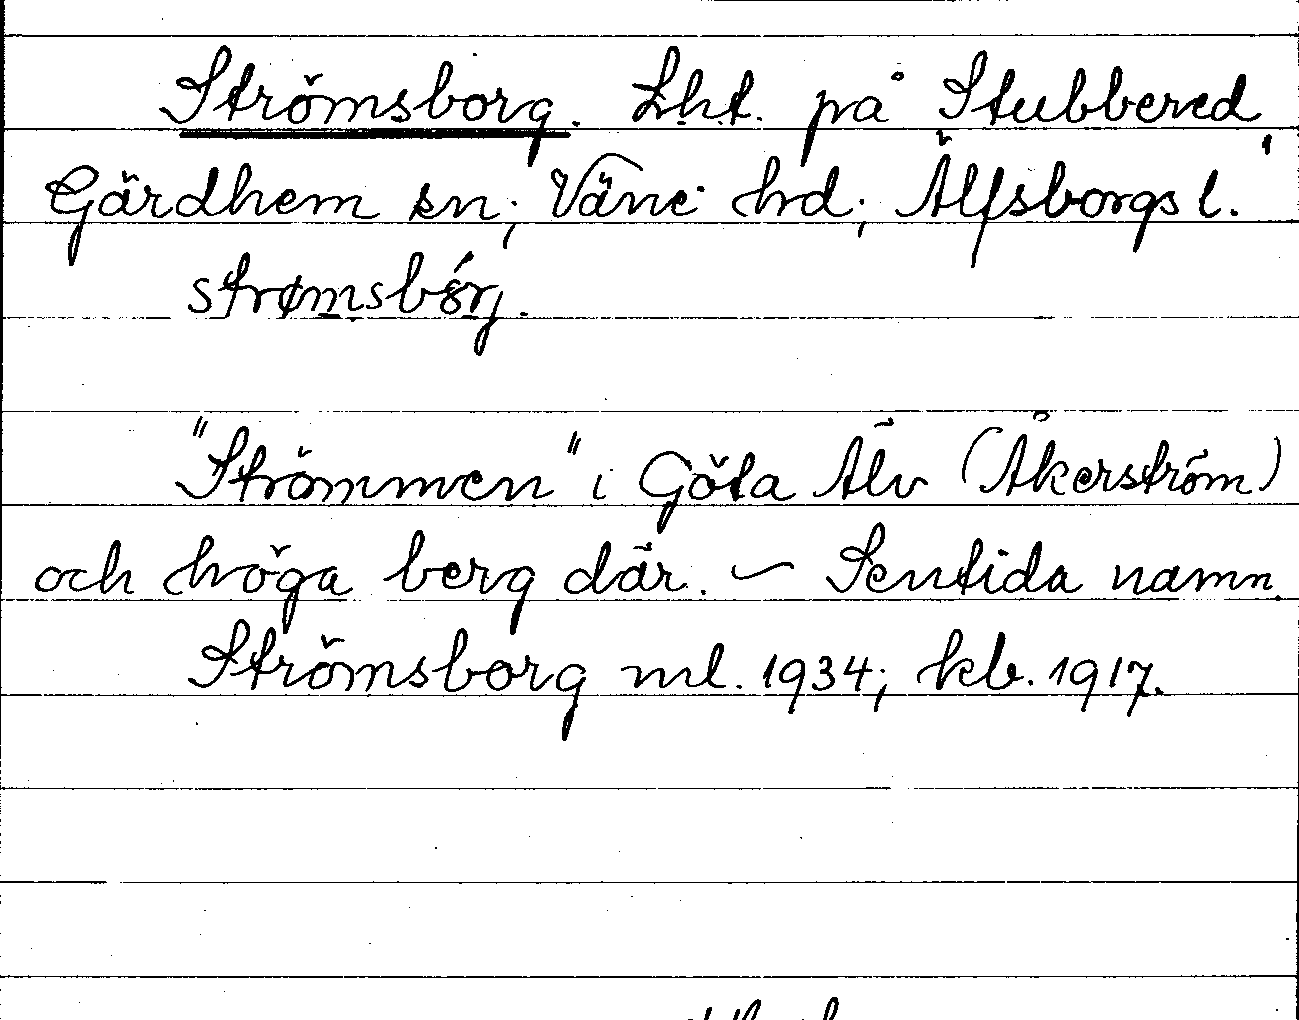 Strömsborg. Lht. på Stubbered,
Gärdhem sn; Väne hd; Älfsborgs l.
strømsbórj.
"Strömmen" i Göta Älv (Åkerström)
och höga berg där. — Sentida namn.
Strömsborg ml. 1934; kb. 1917.